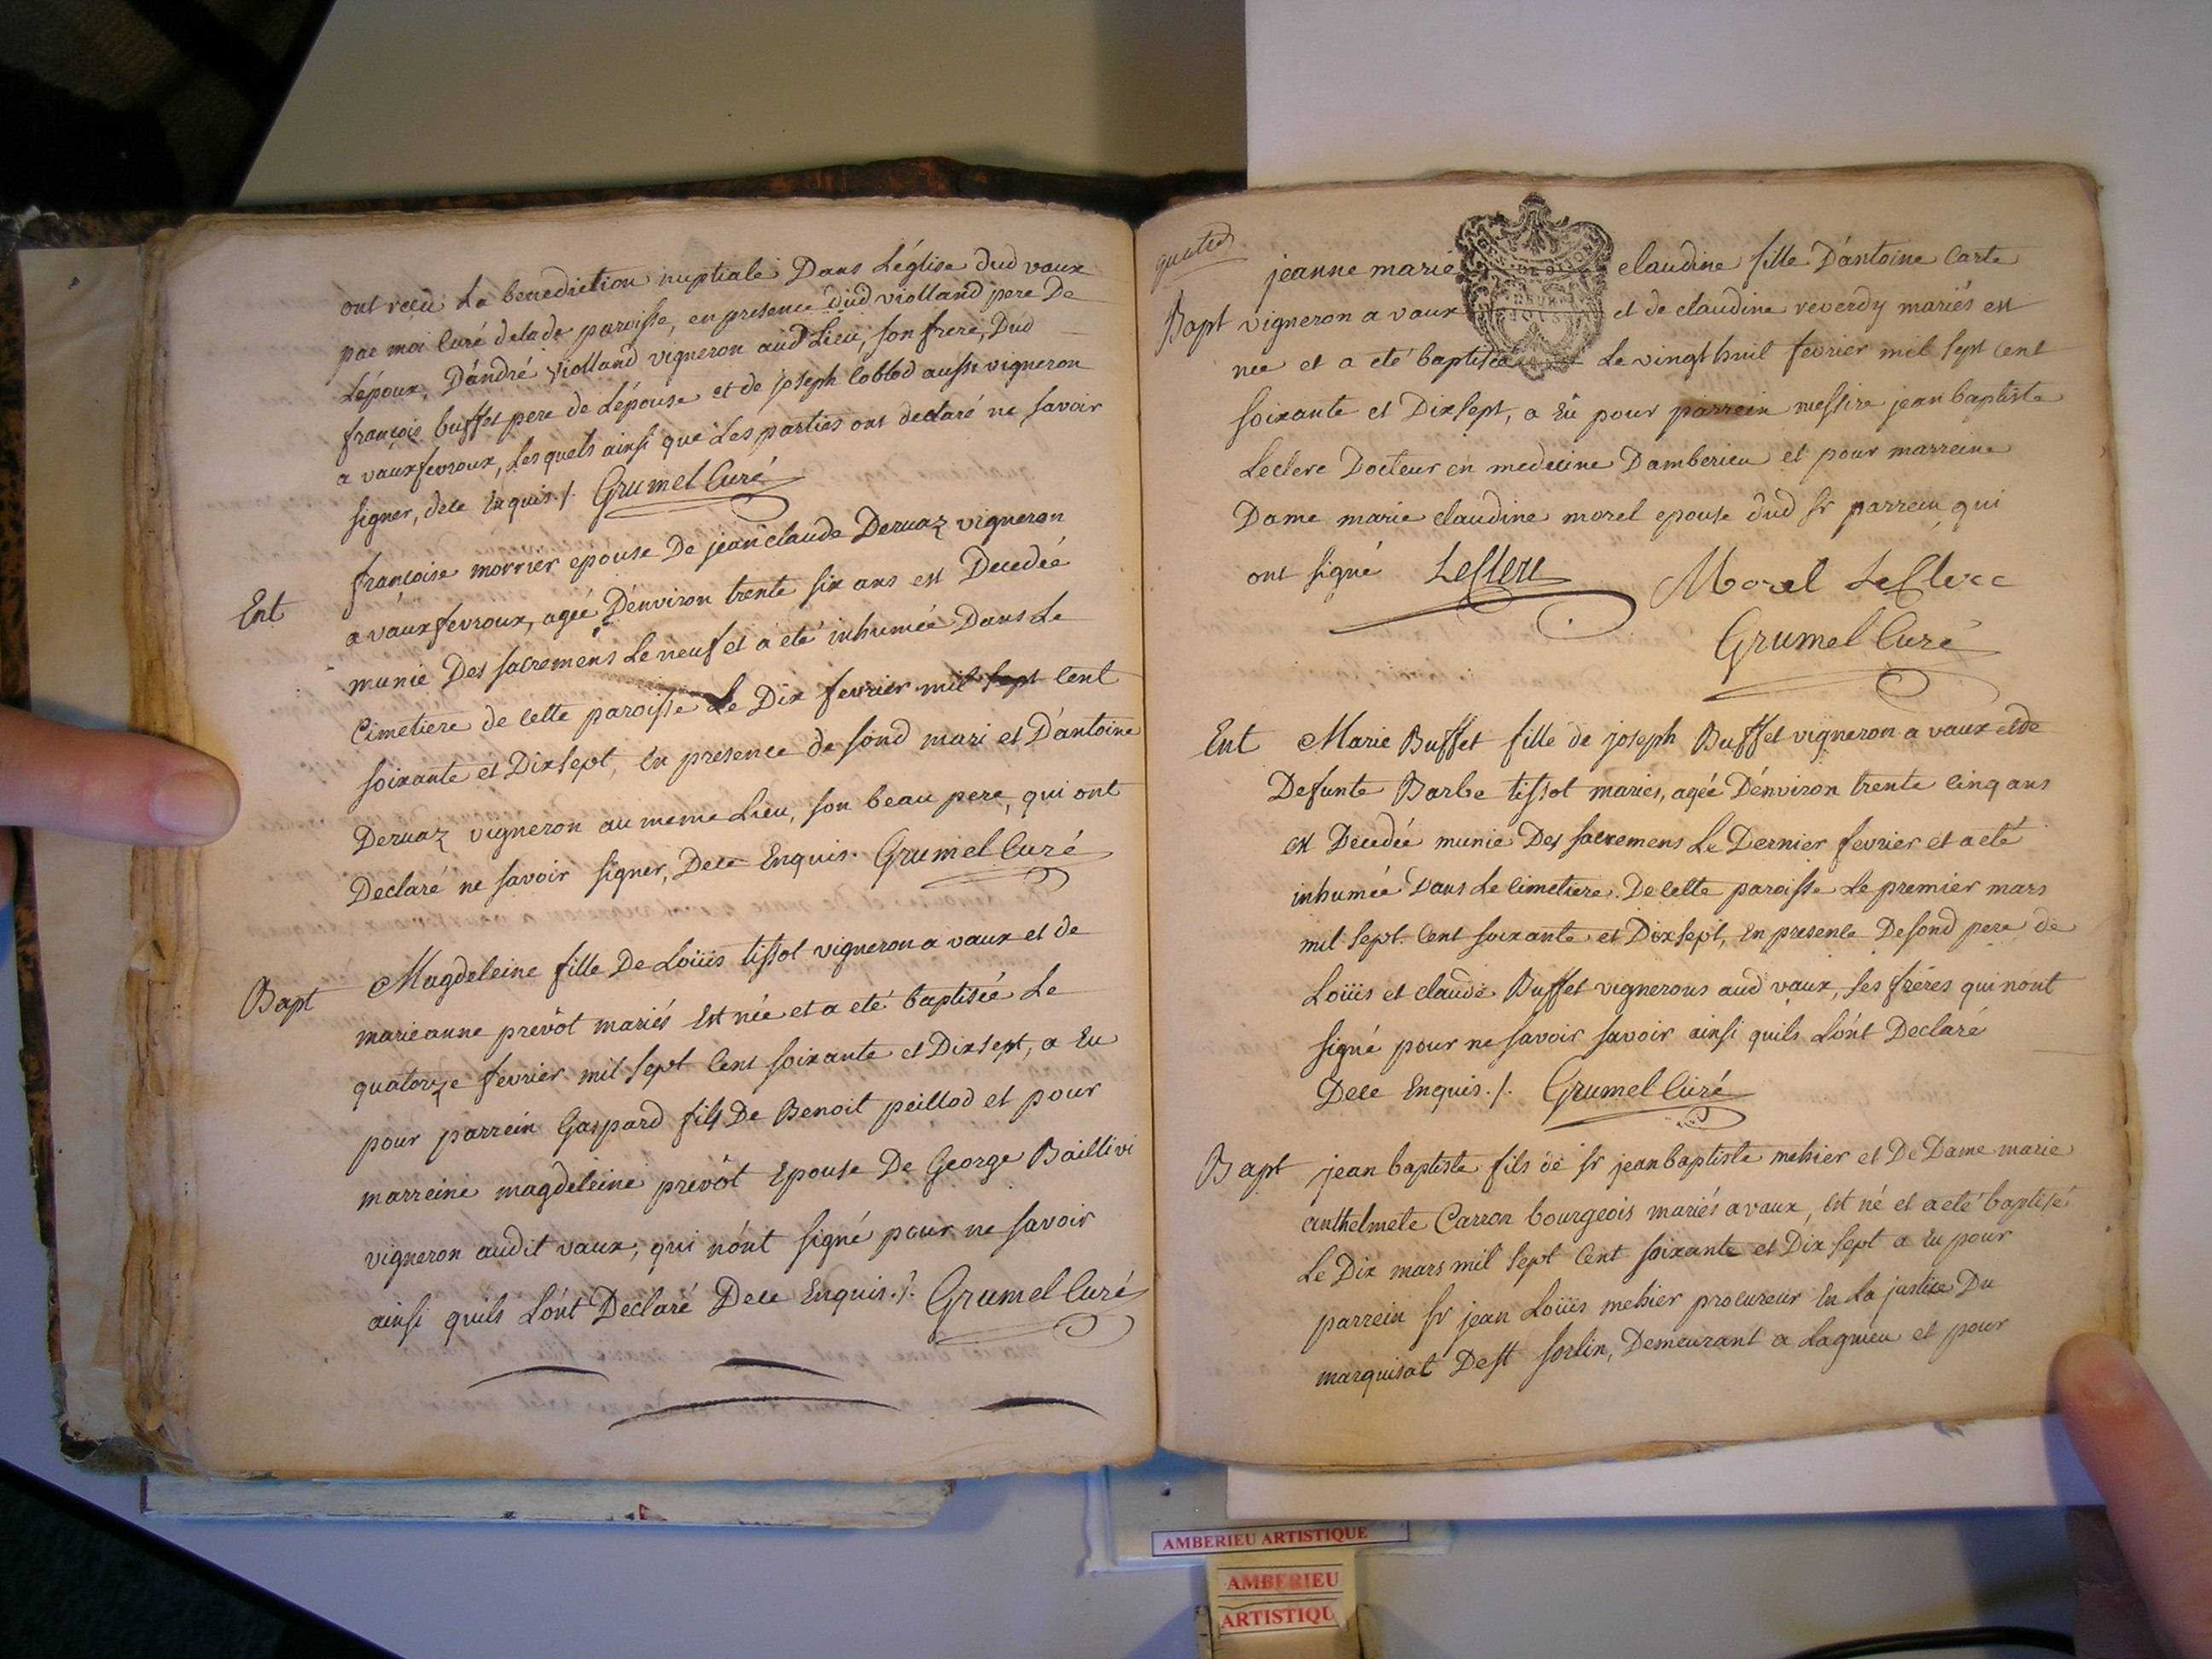 ont reçu La benediction nuptiale Dans L'église dud vaux
par moi Curé de lade paroisse, en presence dud violland pere De
L'époux, D'andré violland vigneron aud Lieu, son frere, Dud
françois buffet pere de L'épouse et de joseph Coblod aussi vigneron
a vauxfevroux, Lesquels ainsi que Les parties ont declaré ne savoir
signer, dece Enquis ./. Grumel Curé
Ent
françoise morrier epouse De jean claude Deruaz vigneron
a vauxfevroux, agée D'environ trente six ans est Decedée
munie Des sacremens Le neuf et a eté inhumée Dans Le
Cimetiere de cette paroisse Le Dix fevrier mil sept Cent
soixante et Dixsept, En presence de sond mari et D'antoine
Deruaz vigneron au meme Lieu, son beau pere, qui ont
Declaré ne savoir signer, Dece Enquis. Grumel Curé
Bapt
Magdeleine fille De Loüis tissot vigneron a vaux et de
marie anne prevôt mariés Est née et a eté baptisée Le
quatorze fevrier mil sept Cent soixante et Dixsept, a Eu
pour parrein Gaspard fils De Benoit peillod et pour
marreine magdeleine prevôt Epouse De George Baillivi
vigneron audit vaux, qui n'ont signé pour ne savoir
ainsi quils L'ont Declaré Dece Enquis ./. Grumel Curé
jeanne marie claudine fille D'antoine Carte
Bapt vigneron a vaux et de claudine reverdy mariés est
née et a eté baptisée Le vingt huit fevrier mil sept Cent
soixante et Dixsept, a Eû pour parrein messire jean baptiste
Leclerc Docteur en medecine D'amberieu et pour marreine
Dame marie claudine morel epouse dud sr parrein, qui
ont signé Leclerc Morel Leclerc
Grumel Curé
Ent Marie Buffet fille de joseph Buffet vigneron a vaux et de
Defunte Barbe tissot mariés, agée D'environ trente Cinq ans
est Decedée munie Des sacremens Le Dernier fevrier et a eté
inhumée Dans Le Cimetiere De cette paroisse Le premier mars
mil sept Cent soixante et Dixsept, En presence De sond pere de
Loüis et claude Buffet vignerons aud vaux, ses fréres qui n'ont
signé pour ne savoir savoir ainsi quils L'ont Declaré
Dece Enquis ./. Grumel Curé
Bapt jean baptiste fils de sr jean baptiste mehier et De Dame marie
anthelmete Carron bourgeois mariés a vaux, est né et a eté baptisé
Le Dix mars mil sept Cent soixante et Dix sept a Eu pour
parrein sr jean Loüis mehier procureur En La justice Du
marquisat De st sorlin, Demeurant a Lagnieu et pour
AMBERIEU ARTISTIQUE
AMBERIEU
ARTISTIQU